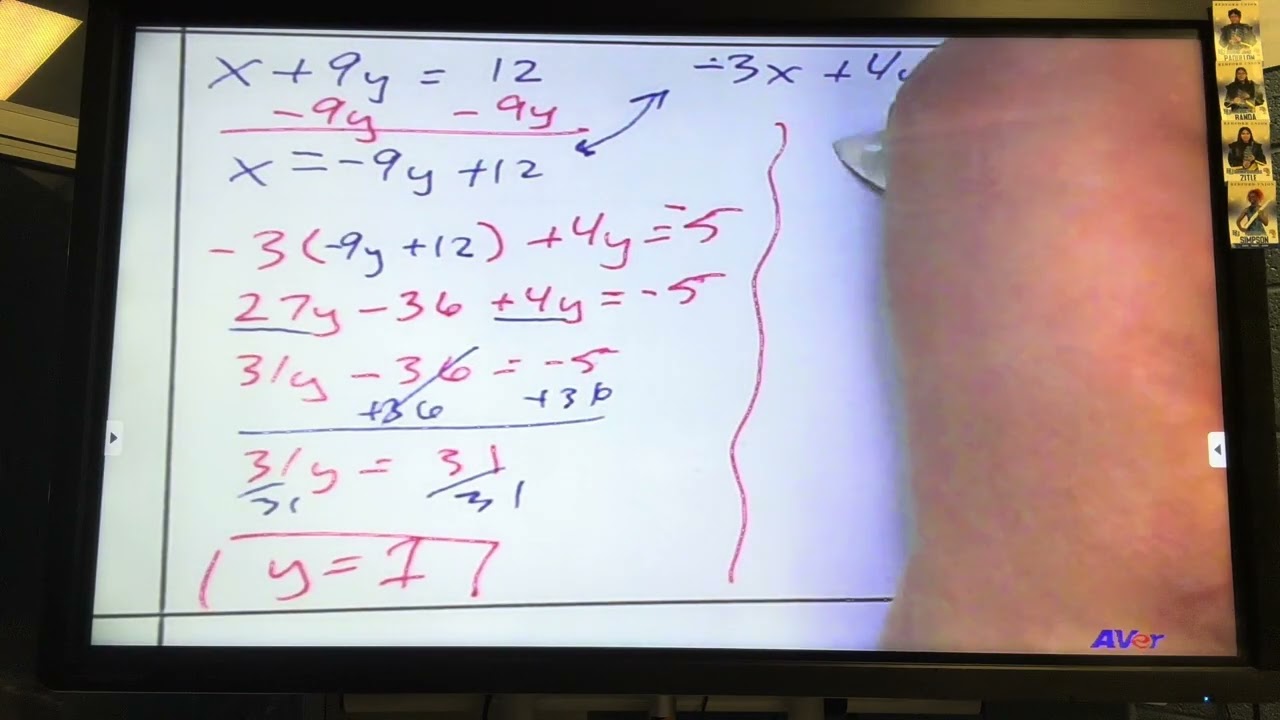 x + 9y = 12
-9y -9y
x = -9y + 12
-3x + 4y
-3(-9y + 12) + 4y = -5
27y - 36 + 4y = -5
31y - 36 = -5
+36 +36
31y = 31
31 31
y = 1
AVer
RANDA
ZITLE
SIMPSON